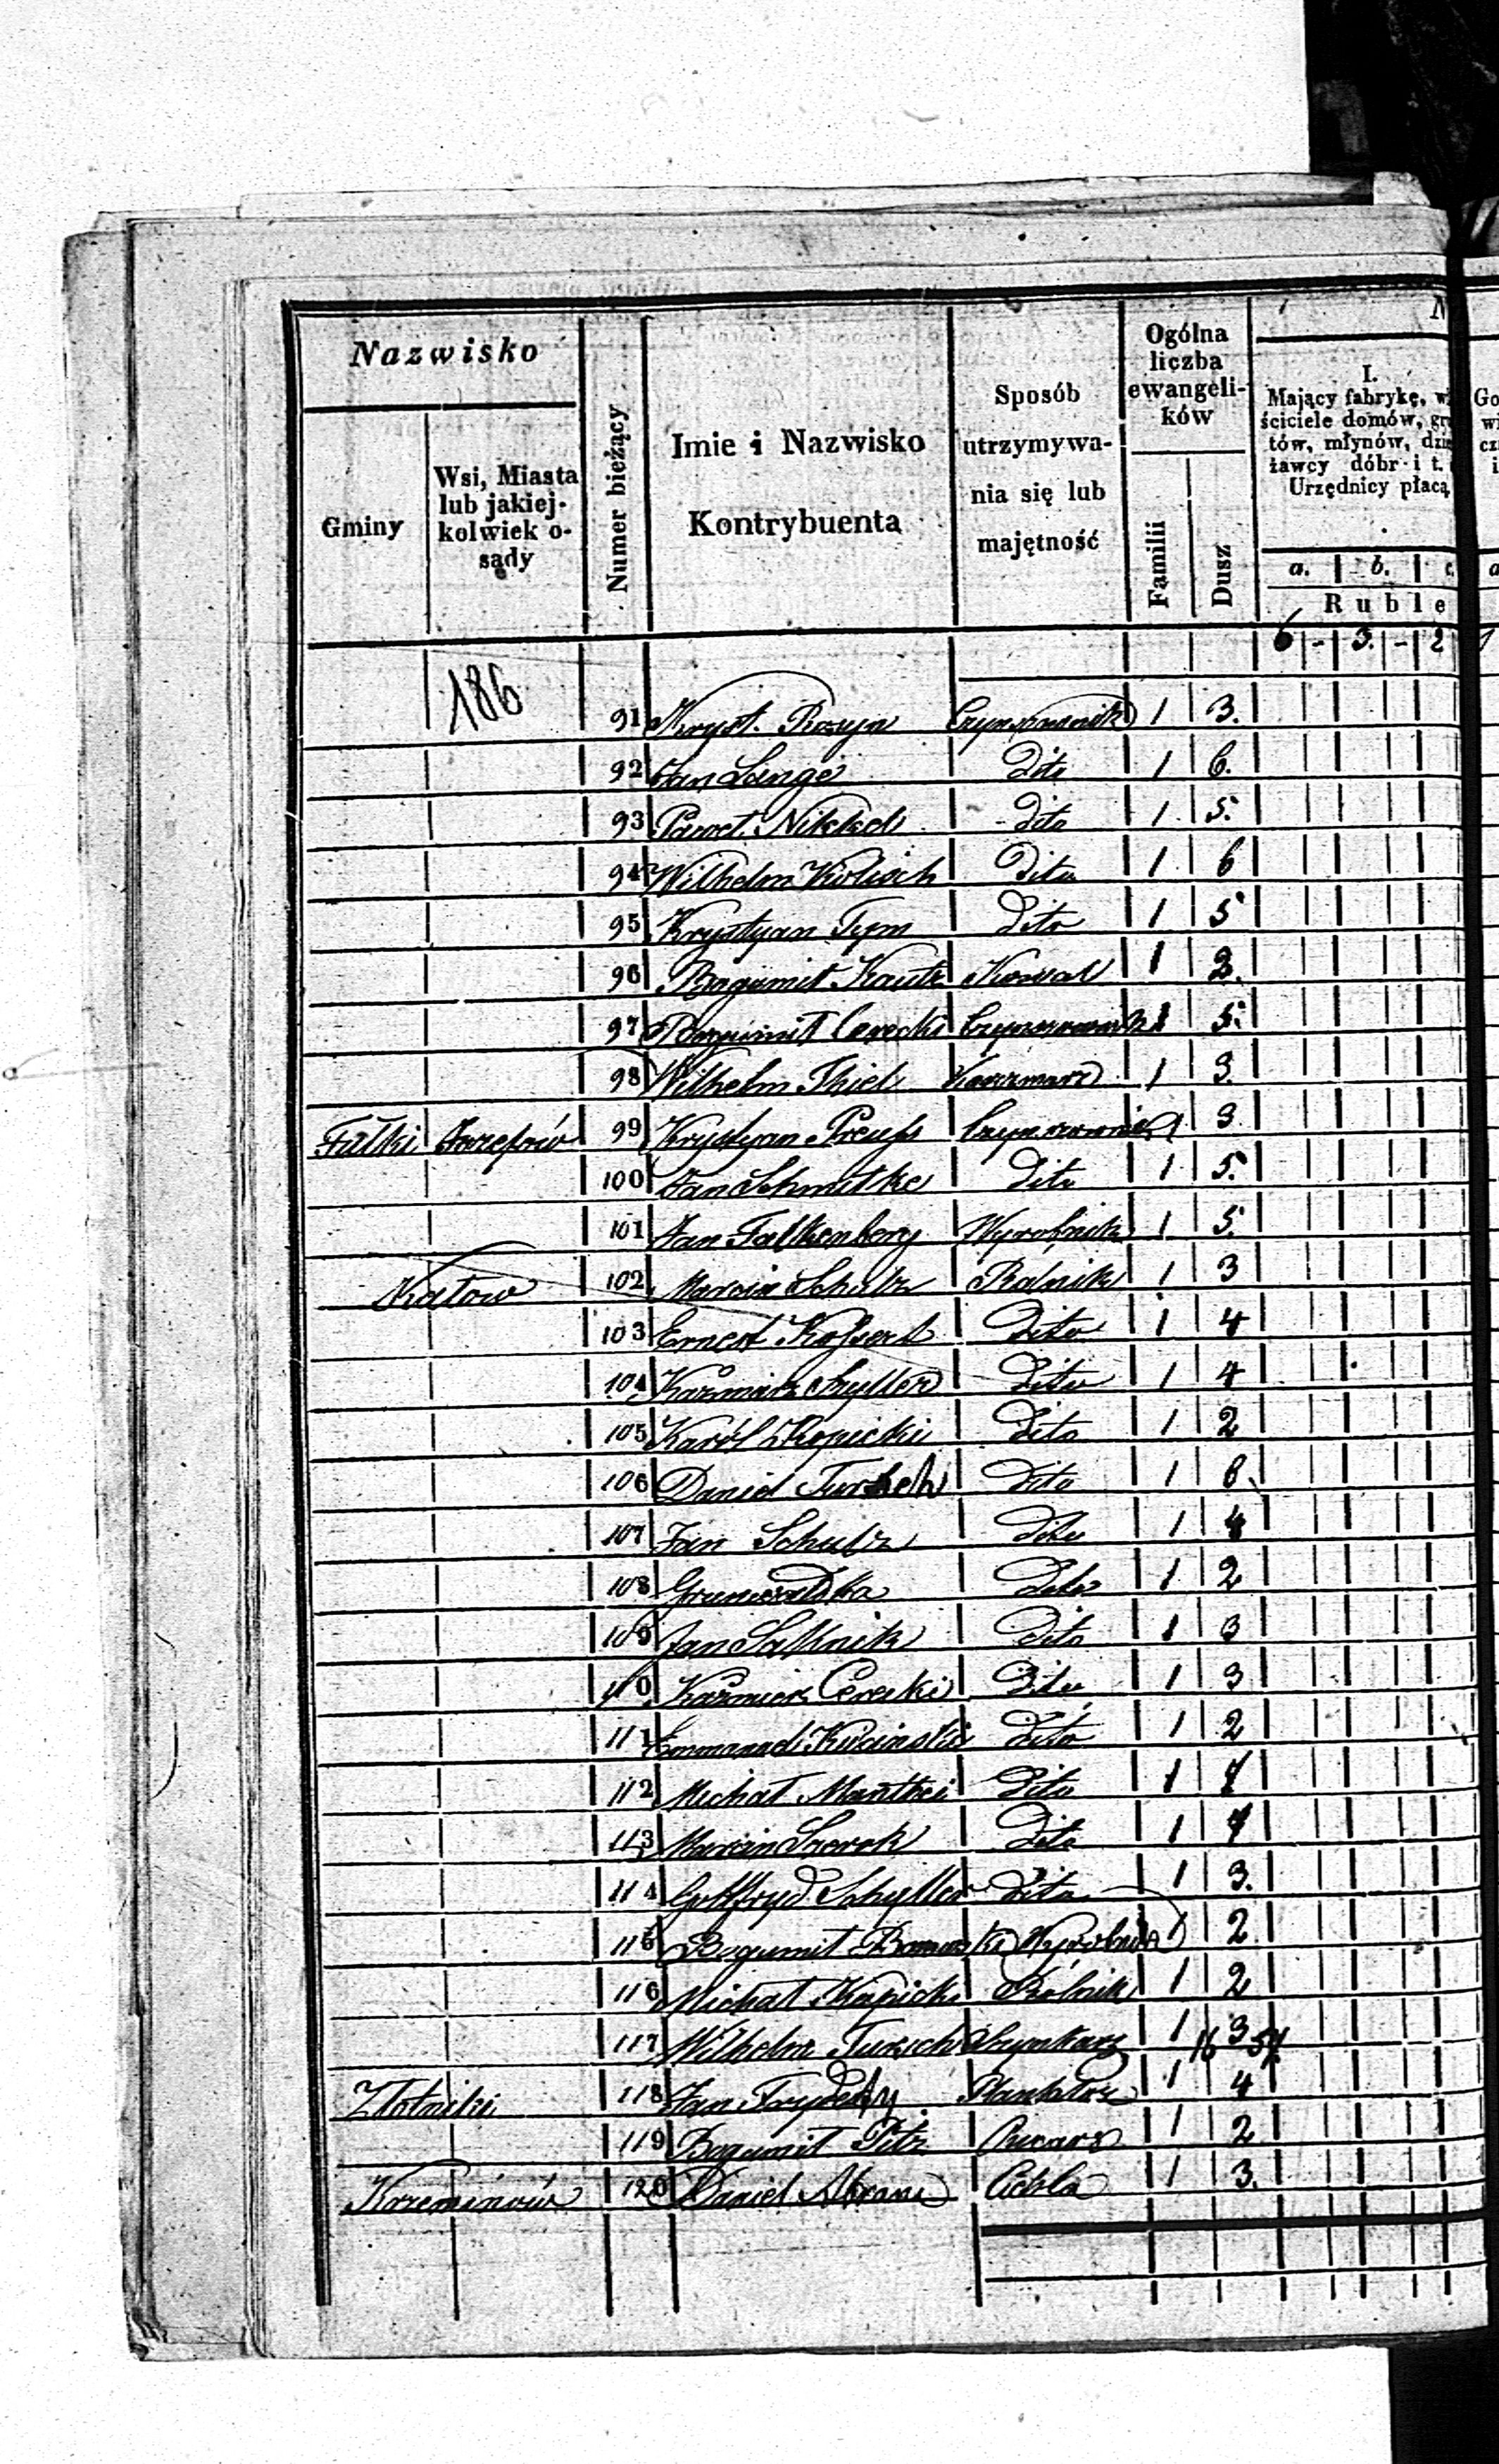 Nazwisko
Gminy
Wsi, Miasta lub jakiej-kolwiek o-sady
Numer bieżący
Imie i Nazwisko Kontrybuenta
Sposób utrzymywa-nia się lub majętność
Ogólna liczba ewangeli-ków
Familii
Dusz
I.
Mający fabrykę,
ściciele domów,
tów, młynów,
żawcy dóbr i t.
Urzędnicy płacą
a. b. c.
Ruble
6 - 3. - 2
186
91 Kryst. Rozyn Czynszownik 1 3.
92 Jan Lange dito 1 6.
93 Paweł Nikkel dito 1 5.
94 Wilhelm Kolisch Dito 1 6
95 Krystyan Tym Dito 1 5
96 Bogumił Kautz Kowal 1 2.
97 Bogumił Cerecki Czynszownik 1 5.
98 Wilhelm Thiel Karczmarz 1 3.
Fałki Józefów 99 Krystyan Preuss Czynszownik 1 3
100 Jan Schmitke Dito 1 5.
101 Jan Falkenberg Wyrobnik 1 5.
Katow 102 Marcin Schulz Rolnik 1 3
103 Ernest Dito 1 4
104 Kazmierz Szyller Dito 1 4
105 Karól Dito 1 2
106 Daniel Tursch Dito 1 6
107 Jan Schulz Dito 1 4
108 Grunwaldka Dito 1 2
109 Jan Salknik Dito 1 3
110 Kazmierz Cerecki Dito 1 3
111 Kucinski Dito 1 2
112 Michał Manthei Dito 1
113 Marcin Dito 1 4
114 Gottfryd Schyller Dito 1 3.
115 Bogumił Wyrobnik 1 2
116 Michał Rolnik 1 2
117 Wilhelm Tursch Szynkarz 1 3
16 54
Złotniki 118 Jan Plantator 1 4
119 Bogumił Pitz Owcarz 1 2
Krzeminiów 120 Daniel Abram Cieśla 1 3.